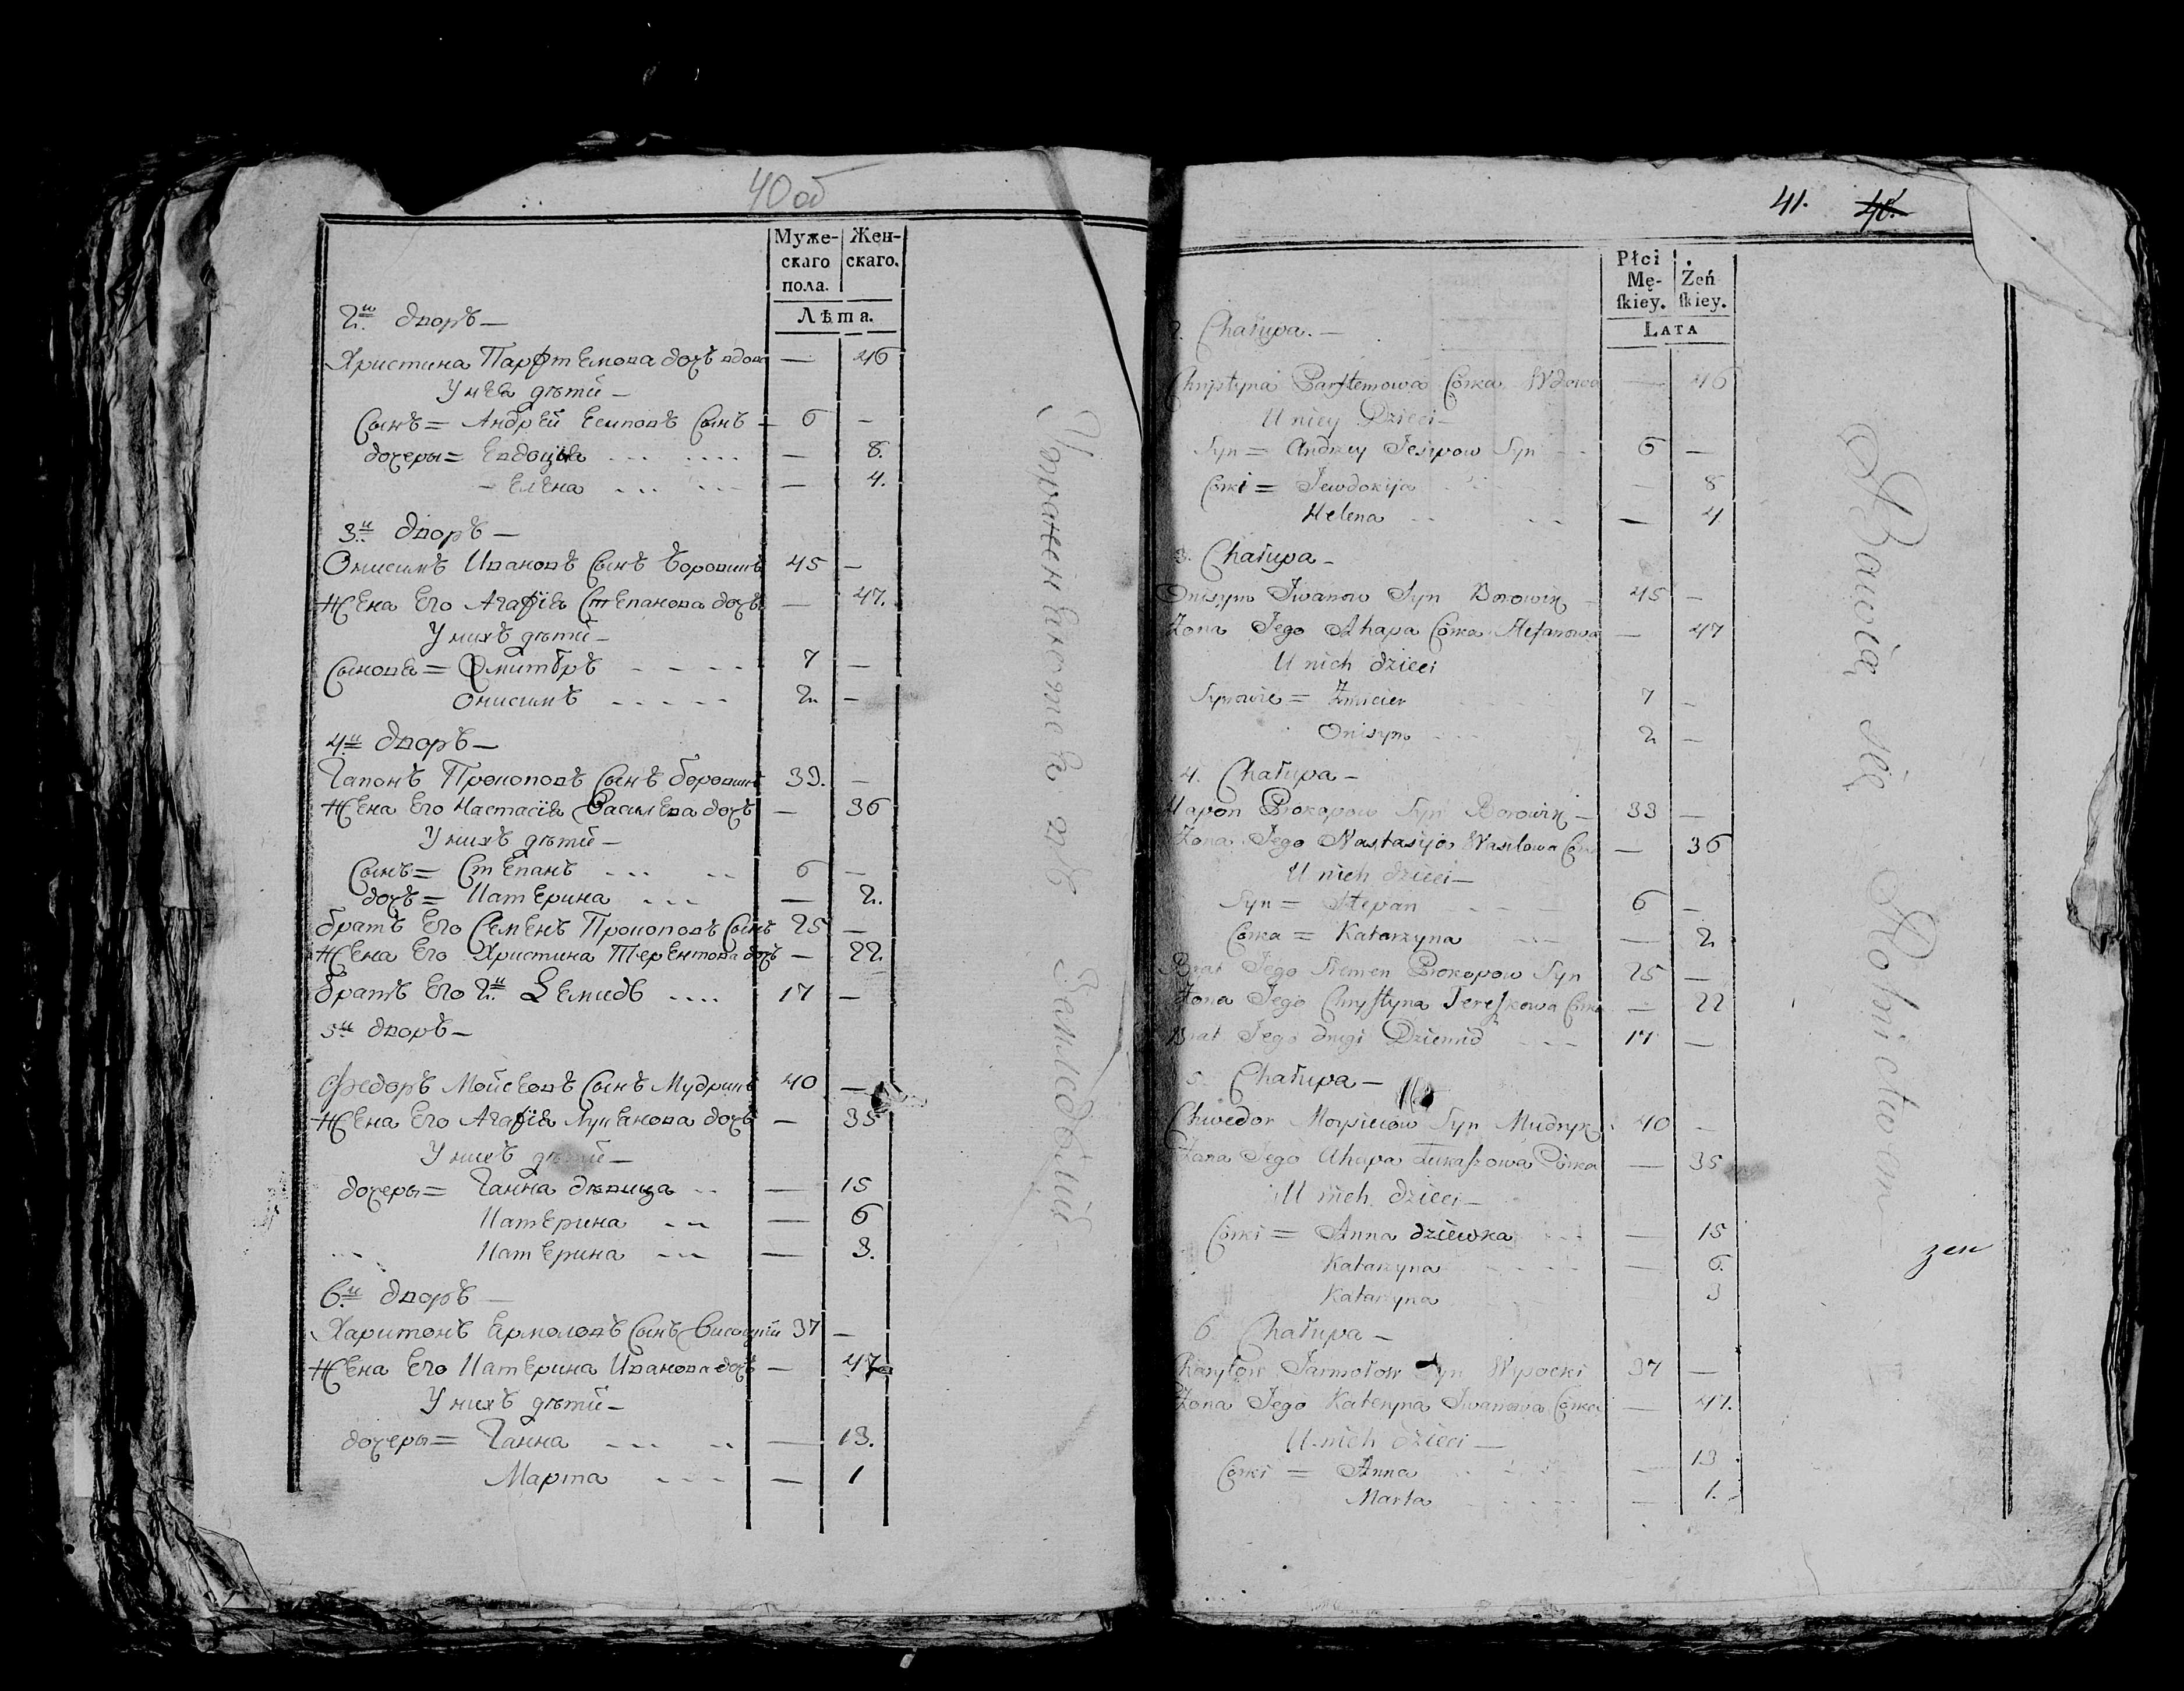 40об
Муже-
скаго
пола.
Жен-
скаго.
Лѣта.
2й дворъ —
Христина Парфтемова дочь вдова — 46
У неи дѣти —
Сынъ = Андрей Есиповъ Сынъ — 6 —
дочеры = Евдоція — 8.
Елена — 4.
3й дворъ —
Онисимъ Ивановъ Сынъ Боровикъ 45 —
Жена Его Агафія Степанова дочь — 47.
У нихъ дѣти —
Сыновя = Дмитръ 7 —
Онисимъ 2 —
4й дворъ —
Гапонъ Прокоповъ Сынъ Боровикъ 33. —
Жена Его Настасія Василева дочь — 36
У нихъ дѣти —
Сынъ = Степанъ 6 —
дочь = Катерина — 2.
братъ Его Семенъ Прокоповъ Сынъ 25 —
Жена Его Христина Терентова дочь — 22.
братъ Его 2й Демидъ 17 —
5й дворъ —
Федоръ Мойсеовъ Сынъ Мудрикъ 40 —
Жена Его Агафія Лукянова дочь — 35
У нихъ дѣти —
дочеры = Ганна дѣвица — 15
Катерина — 6
Катерина — 3.
6й дворъ —
Харитонъ Ермоловъ Сынъ Висоцкій 37 —
Жена Его Катерина Иванова дочь — 47
У нихъ дѣти —
дочеры = Ганна — 13.
Марта — 1
Упражняются въ Земледѣліи
41. 40.
Płci
Mę-
ſkiey.
Żeń
ſkiey.
LATA
2. Chałupa. —
Chryſtyna Parftemowa Córka Wdowa — 46
U niey Dzieci —
Syn = Andrzey Jesipow Syn 6 —
Córki = Jewdokija — 8
Helena — 4
3. Chałupa —
Onisym Iwanow Syn Borowik 45 —
Żona Jego Ahapa Córka Stefanowa — 47
U nich dzieci
Synowie = Zmicier 7 —
Onisym 2 —
4. Chałupa —
Hapon Prokopow Syn Borowik — 33 —
Żona Jego Nastasija Wasilowa Córka — 36
U nich dzieci —
Syn = Stepan 6 —
Córka = Katarzyna — 2
Brat Jego Siemen Prokopow Syn 25 —
Żona Jego Chryſtyna Tereſzkowa Córka — 22
Brat Jego drugi Dziemid 17 —
5. Chałupa —
Chwedor Moysieiow Syn Mudryk 40 —
Żona Jego Ahapa Łukaſzowa Córka — 35
U nich dzieci —
Córki = Anna dziewka — 15
Katarzyna — 6.
Katarzyna 3
6. Chałupa —
Charyton Jarmołow Syn Wysocki 37 —
Żona Jego Kateryna Iwanowa Córka — 47.
U nich dzieci —
Córki = Anna — 13
Marta — 1.
Bawią się Rolnictwem